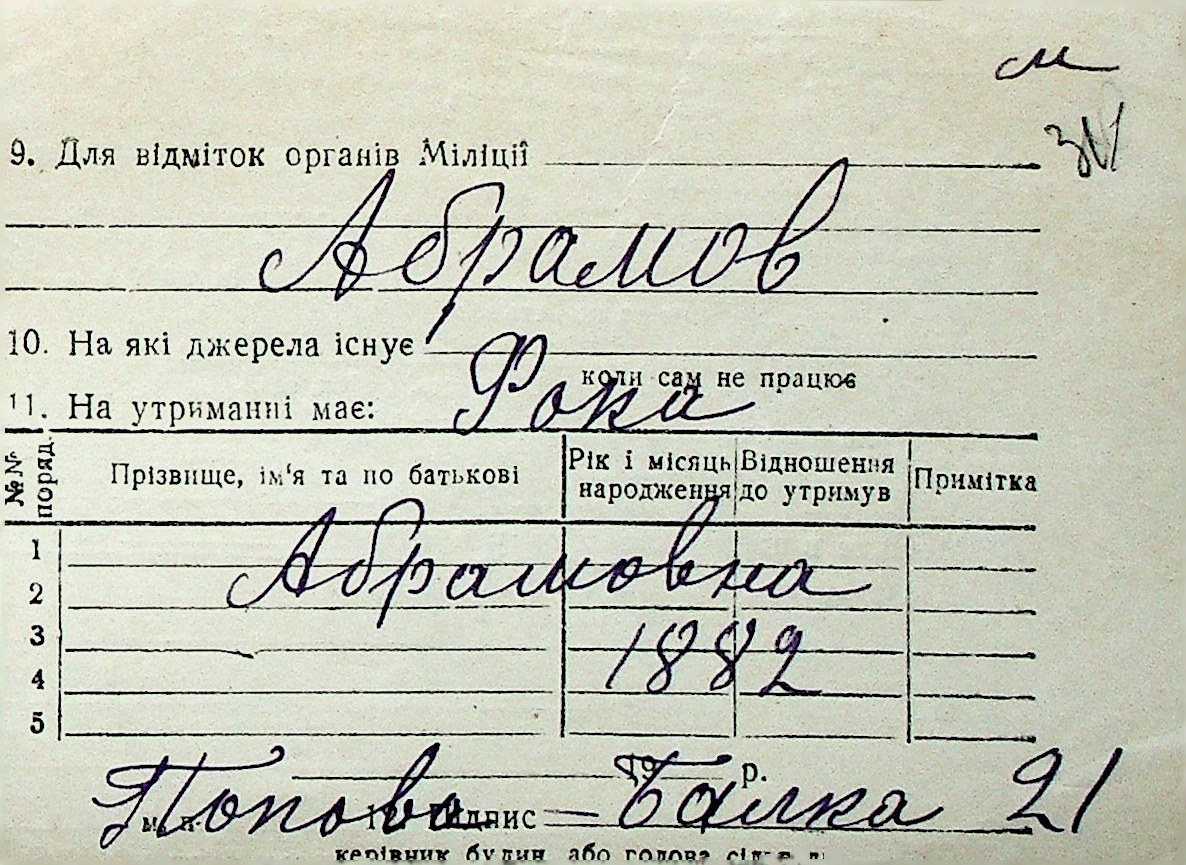 9. Для відміток органів Міліції
Абрамов
10. На які джерела існує
коли сам не працює
Фока
11. На утриманні має:
№№ поряд. Прізвище, ім'я та по батькові Рік і місяць народження Відношення до утримув Примітка
Абрамовна
1
2
1882
3
4
5
19 р.
Попова - Балка 21
Підпис
керівник будин. або голова